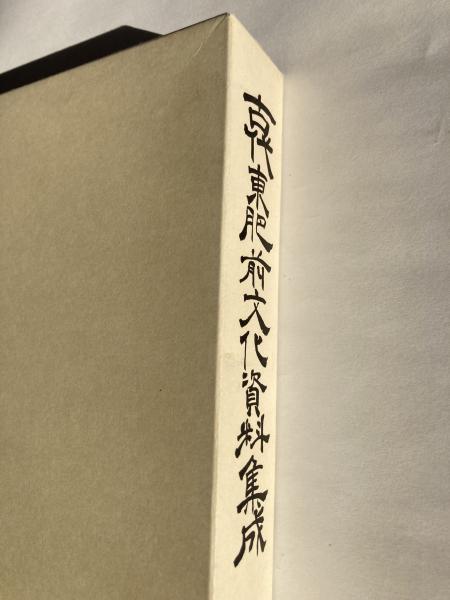 古代東肥前文化資料集成